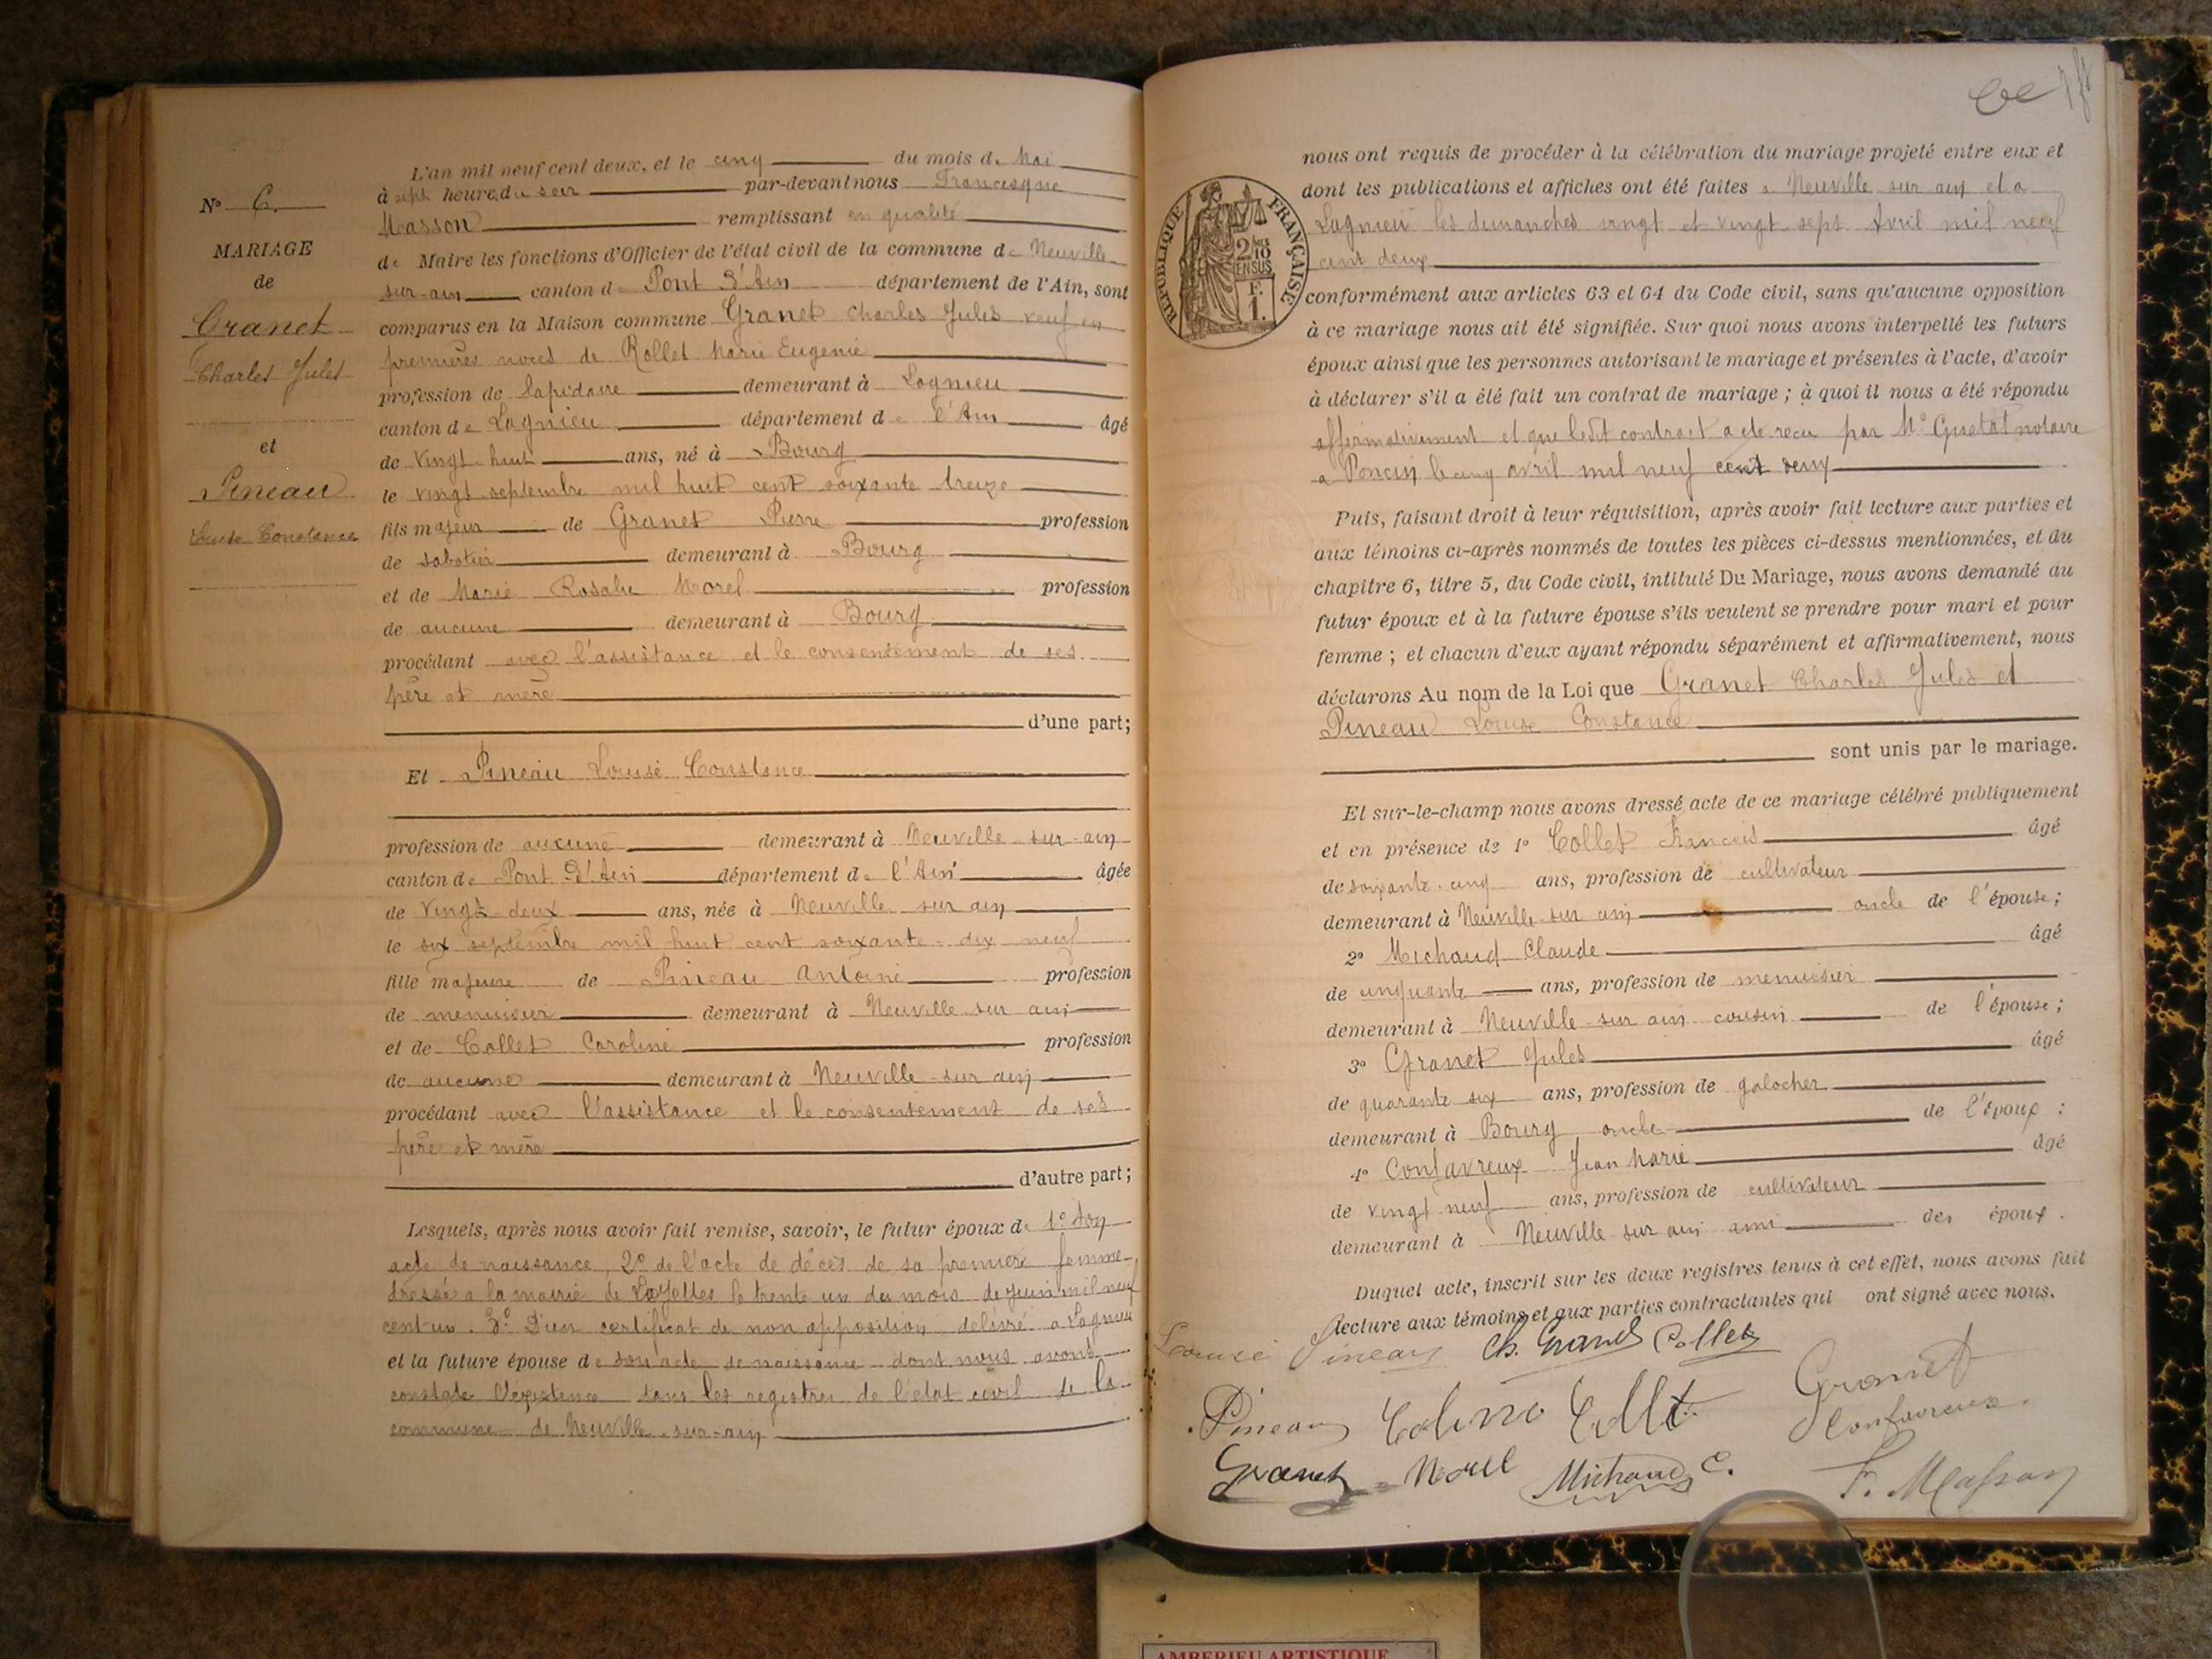 N° 6.
MARIAGE
de
Granet
Charles Jules
et
Pineau
Louise Constance
L'an mil neuf cent deux, et le cinq du mois de Mai
à sept heures du soir par-devant nous Francisque
Masson remplissant en qualité
de Maire les fonctions d'Officier de l'état civil de la commune de Neuville
sur-ain canton de Pont d'Ain département de l'Ain, sont
comparus en la Maison commune Granet Charles Jules veuf en
premières noces de Rollet Marie Eugenie
profession de lapidaire demeurant à Lagnieu
canton de Lagnieu département de l'Ain âgé
de vingt-huit ans, né à Bourg
le vingt septembre mil huit cent soixante treize
fils majeur de Granet Pierre profession
de sabotier demeurant à Bourg
et de Marie Rosalie Morel profession
de aucune demeurant à Bourg
procédant avec l'assistance et le consentement de ses
père et mère
d'une part;
Et Pineau Louise Constance
profession de aucune demeurant à Neuville sur-ain
canton de Pont d'Ain département de l'Ain âgée
de vingt-deux ans, née à Neuville sur ain
le six septembre mil huit cent soixante-dix neuf
fille majeure de Pineau Antoine profession
de menuisier demeurant à Neuville sur ain
et de Collet Caroline profession
de aucune demeurant à Neuville sur ain
procédant avec l'assistance et le consentement de ses
père et mère
d'autre part;
Lesquels, après nous avoir fait remise, savoir, le futur époux de 1° son
acte de naissance, 2° de l'acte de décès de sa première femme
dressé a la mairie de Loyettes le trente un du mois de juin mil neuf
cent un. 3° D'un certificat de non opposition délivré a Lagnieu
et la future épouse de son acte de naissance dont nous avons
constaté l'existence dans les registres de l'état civil de la
commune de Neuville-sur-ain
nous ont requis de procéder à la célébration du mariage projeté entre eux et
dont les publications et affiches ont été faites a Neuville sur ain et a
Lagnieu les dimanches vingt et vingt-sept Avril mil neuf
cent deux
RÉPUBLIQUE FRANÇAISE
2/10
EN SUS
F.
1.
conformément aux articles 63 et 64 du Code civil, sans qu'aucune opposition
à ce mariage nous ait été signifiée. Sur quoi nous avons interpellé les futurs
époux ainsi que les personnes autorisant le mariage et présentes à l'acte, d'avoir
à déclarer s'il a été fait un contrat de mariage ; à quoi il nous a été répondu
affirmativement et que ledit contract a ete recu par M° notaire
a Poncin le cinq avril mil neuf cent deux
Puis, faisant droit à leur réquisition, après avoir fait lecture aux parties et
aux témoins ci-après nommés de toutes les pièces ci-dessus mentionnées, et du
chapitre 6, titre 5, du Code civil, intitulé Du Mariage, nous avons demandé du
futur époux et à la future épouse s'ils veulent se prendre pour mari et pour
femme ; et chacun d'eux ayant répondu séparément et affirmativement, nous
déclarons Au nom de la Loi que Granet Charles Jules et
Pineau Louise Constance
sont unis par le mariage.
Et sur-le-champ nous avons dressé acte de ce mariage célébré publiquement
et en présence de 1° Collet Francois âgé
de soixante-cinq ans, profession de cultivateur
demeurant à Neuville-sur ain oncle de l'épouse;
2° Michaud Claude âgé
de cinquante ans, profession de menuisier
demeurant à Neuville-sur ain cousin de l'épouse;
3° Granet Jules âgé
de quarante six ans, profession de galocher
demeurant à Bourg oncle de l'époux;
4° Confavreux Jean Marie âgé
de vingt neuf ans, profession de cultivateur
demeurant à Neuville sur ain ami des époux.
Duquel acte, inscrit sur les deux registres tenus à cet effet, nous avons fait
lecture aux témoins et aux parties contractantes qui ont signé avec nous.
Louise Pineau Ch. Granet Collet
Pineau Collet Granet
Confavreux
Granet Morel Michaud C. F. Masson
AMBERIEU ARTISTIQUE